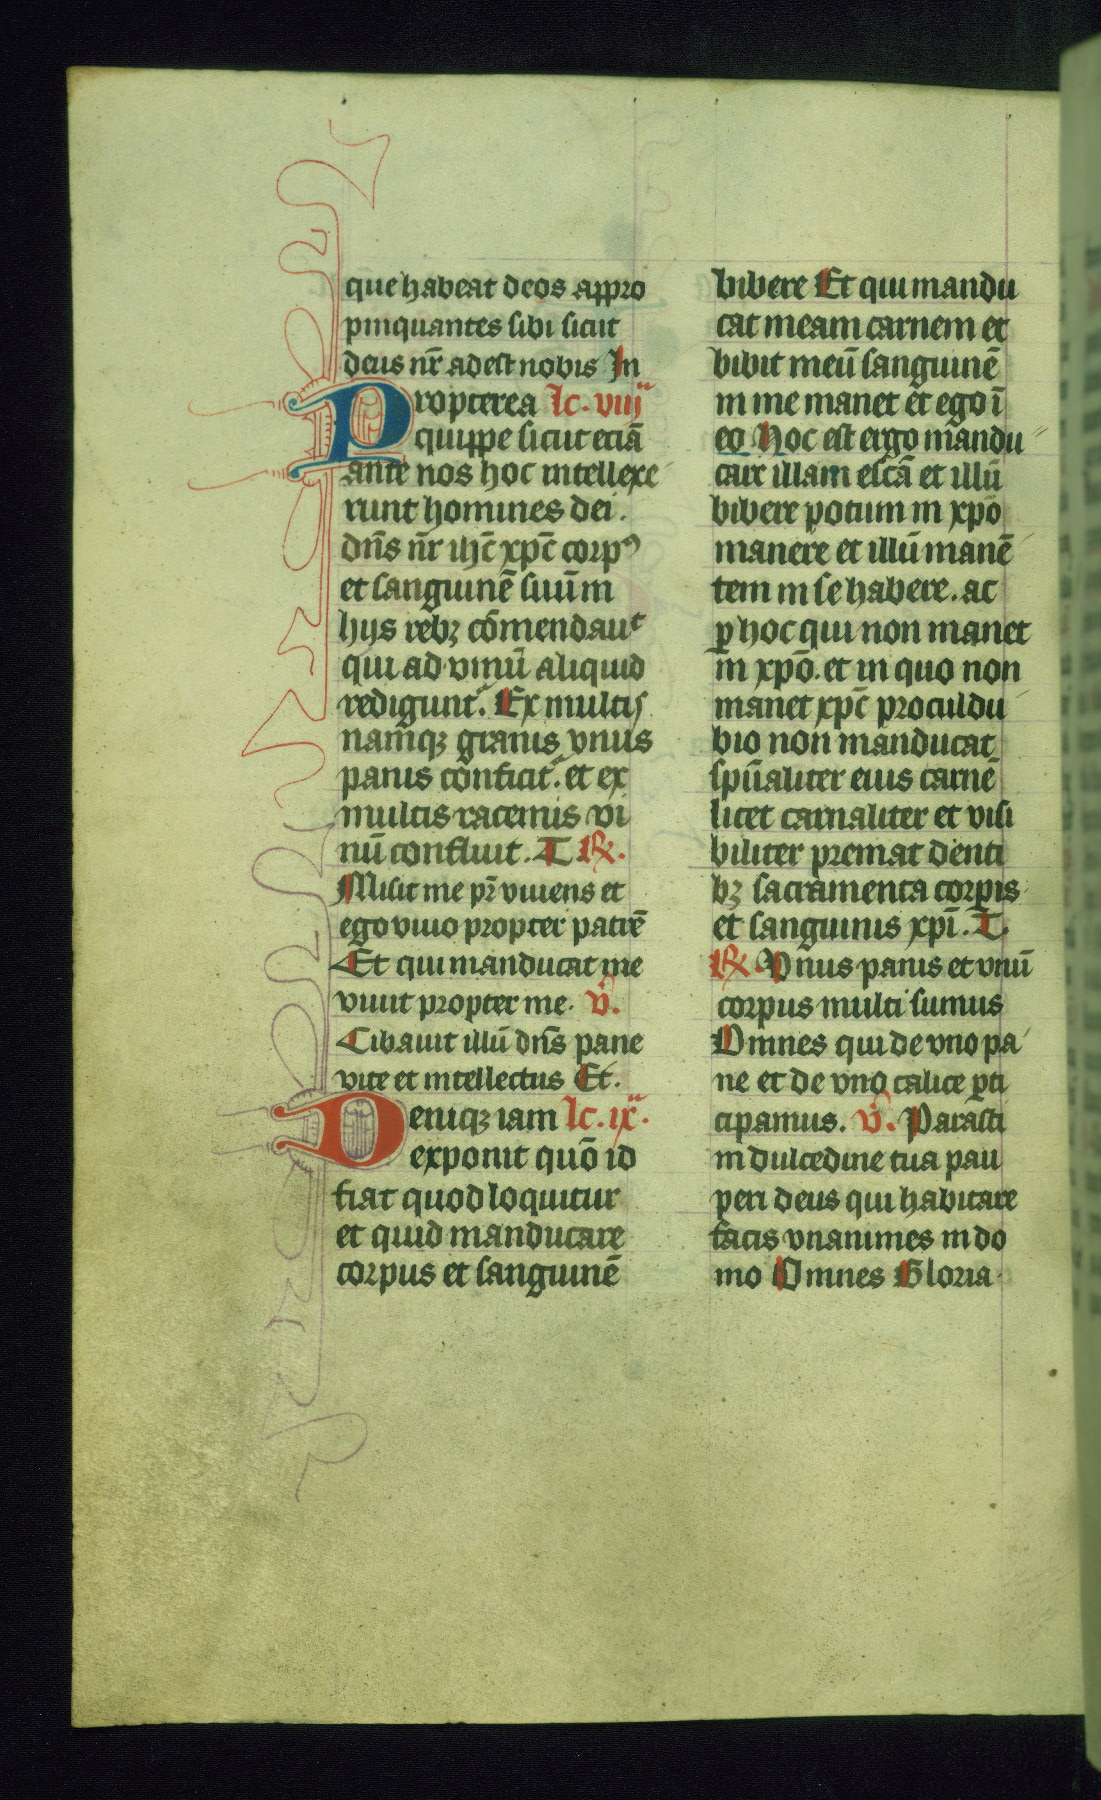 que habeat deos appro
pinquantes sibi sicut
deus nr̄ adest nobis In
Propterea lc. viijª
quippe sicut eciā
ante nos hoc intellexe
runt homines dei.
dn̄s nr̄ ih̄c xp̄c corpꝰ
et sanguinē suū in
hijs rebꝫ cōmendauᵗ
qui ad vnnū aliquid
redigunt᷑. Ex multis
namqꝫ granis vnus
panis conficit᷑. et ex
multis racemis vi
nū confluit. T ℟.
Misit me pr̄ viuens et
ego viuo propter patrē
Et qui manducat me
viuit propter me. ℣.
Cibauit illū dn̄s pane
vite et intellectus Et.
Deniqꝫ iam lc. ixª.
exponit quō id
fiat quod loquitur
et quid manducare
corpus et sanguinē
bibere Et qui mandu
cat meam carnem et
bibit meū sanguinē
in me manet et ego ī
eo Hoc est ergo mandu
care illam escā et illū
bibere potum in xp̄o
manere et illū manē
tem in se habere. ac
ꝑ hoc qui non manet
in xp̄o. et in quo non
manet xp̄c proculdu
bio non manducat
sp̄ualiter eius carnē
licet carnaliter et visi
biliter premat denti
bꝫ sacramenta corpis
et sanguinis xp̄i. T
℟. Vnus panis et vnū
corpus multi sumus
Omnes qui de vno pa
ne et de vno calice ꝑti
cipamus. ℣. Parasti
in dulcedine tua pau
peri deus qui habitare
facis vnanimes in do
mo Omnes Gloria